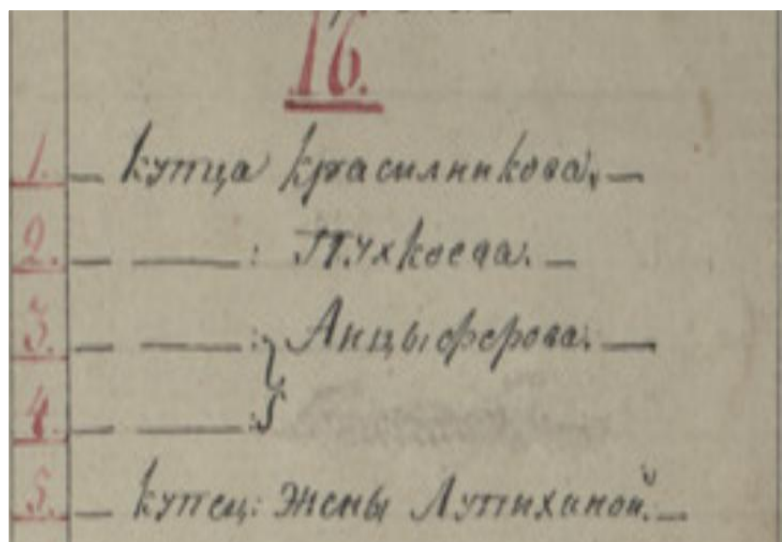 16.
1. — купца Красилникова. —
2. — — : Пухкоева. —
3. — — : Анцыферова. —
4. — — :
5. — купец: жены Лутихиной. —